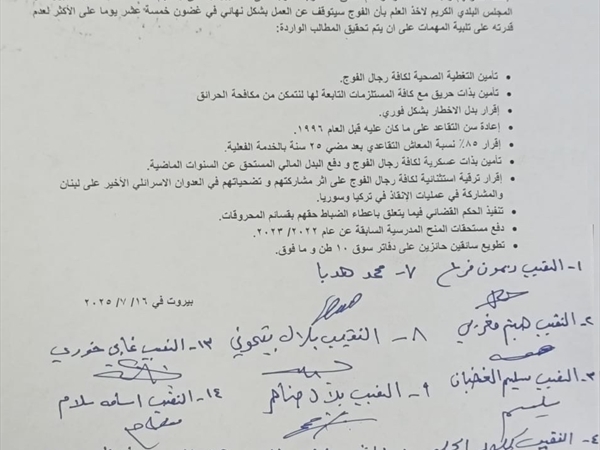 المجلس البلدي الكريم لاخذ العلم بأن الفوج سيتوقف عن العمل بشكل نهائي في غضون خمسة عشر يوما على الأكثر لعدم
قدرته على تلبية المهمات على ان يتم تحقيق المطالب الواردة:
• تأمين التغطية الصحية لكافة رجال الفوج.
• تأمين بذات حريق مع كافة المستلزمات التابعة لها لنتمكن من مكافحة الحرائق
• إقرار بدل الاخطار بشكل فوري.
• إعادة سن التقاعد على ما كان عليه قبل العام ١٩٩٦.
• إقرار ٨٥٪ نسبة المعاش التقاعدي بعد مضي ٢٥ سنة بالخدمة الفعلية.
• تأمين بذات عسكرية لكافة رجال الفوج و دفع البدل المالي المستحق عن السنوات الماضية.
• إقرار ترقية استثنائية لكافة رجال الفوج على اثر مشاركتهم و تضحياتهم في العدوان الاسرائلي الأخير على لبنان
والمشاركة في عمليات الإنقاذ في تركيا وسوريا.
• تنفيذ الحكم القضائي فيما يتعلق باعطاء الضباط حقهم بقسائم المحروقات.
• دفع مستحقات المنح المدرسية السابقة عن عام ٢٠٢٢/ ٢٠٢٣.
• تطويع سائقين حائزين على دفاتر سوق ١٠ طن و ما فوق.
بيروت في ١٦/ ٧/ ٢٠٢٥
١- النقيب ريمون فرح
٧- محمد هدبا
٢- النقيب هيثم مغربي
٨- النقيب بلال
١٣- النقيب غابي خوري
٣- النقيب سليم الغضبان
٩- النقيب بلال ضاهر
١٤- النقيب اسامه سلام
٤- النقيب